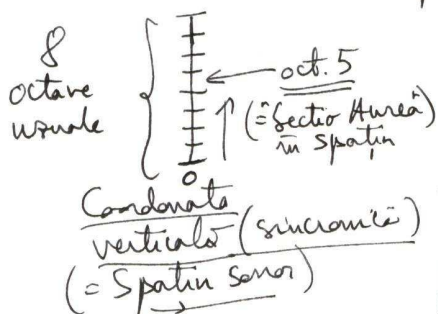 8
octave
uzuale
oct. 5
(= Sectio Aurea)
în Spațiu
0
Coordonata
verticală (sincronică)
(= Spațiu sonor)